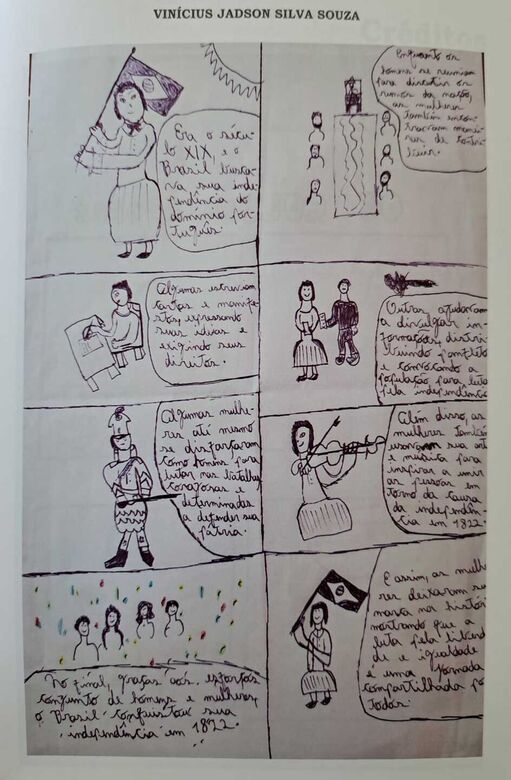 VINÍCIUS JADSON SILVA SOUZA
Era o sécu-
lo XIX, e o
Brasil busca-
va sua inde-
pendência do
domínio por-
tuguês.
Enquanto os
homens se reuniam
para discutir os
rumos da nação,
as mulheres
também encon-
travam manei-
ras de contri-
buir.
Algumas escreviam
cartas e manifes-
tos, expressando
suas ideias e
exigindo seus
direitos.
Outras ajudavam
a divulgar in-
formações, distri-
buindo panfletos
e convocando a
população para luta
pela independência
Algumas mulhe-
res até mesmo
se disfarçaram
como homens para
lutar nas batalhas
corajosas e
determinadas
a defender sua
pátria.
Além disso, as
mulheres também
usavam sua arte
música para
inspirar a unir
as pessoas em
torno da causa
da independên-
cia em 1822.
No final, graças aos esforços
conjunto de homens e mulheres,
o Brasil conquistou sua
independência em 1822.
E assim, as mulhe
res deixaram su
marca na histór
mostrando que a
luta pela liberd
de e igualdade
é uma jornada
compartilhada po
todos.